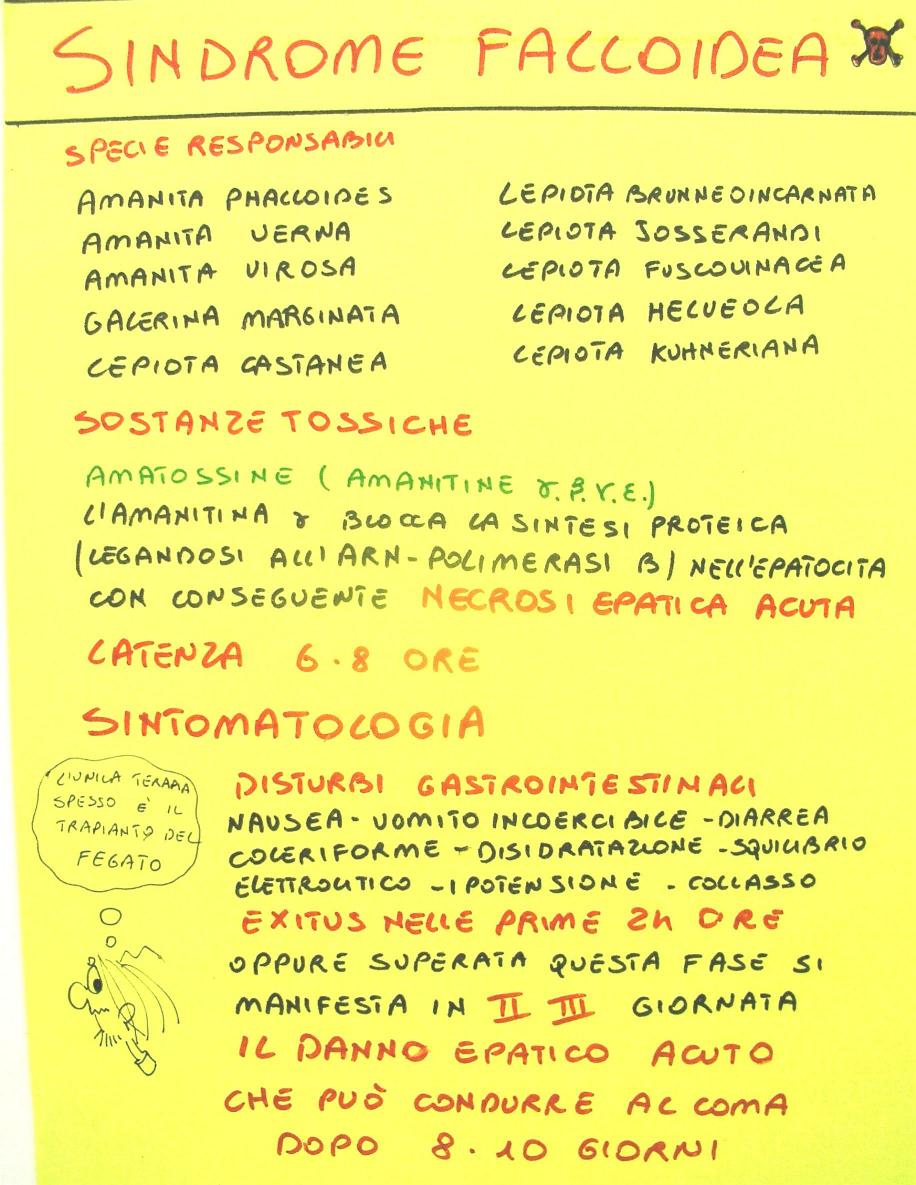 SINDROME FALLOIDEA
SPECIE RESPONSABILI
AMANITA PHALLOIDES
AMANITA VERNA
AMANITA VIROSA
GALERINA MARGINATA
LEPIOTA CASTANEA
LEPIOTA BRUNNEOINCARNATA
LEPIOTA JOSSERANDI
LEPIOTA FUSCOVINACEA
LEPIOTA HELVEOLA
LEPIOTA KUHNERIANA
SOSTANZE TOSSICHE
AMATOSSINE ( AMANITINE α. β. γ. ε.)
L'AMANITINA α BLOCCA LA SINTESI PROTEICA
(LEGANDOSI ALL'ARN-POLIMERASI B) NELL'EPATOCITA
CON CONSEGUENTE NECROSI EPATICA ACUTA
LATENZA 6-8 ORE
SINTOMATOLOGIA
L'UNICA TERAPIA
SPESSO E' IL
TRAPIANTO DEL
FEGATO
DISTURBI GASTROINTESTINALI
NAUSEA - VOMITO INCOERCIBILE - DIARREA
COLERIFORME - DISIDRATAZIONE - SQUILIBRIO
ELETTROLITICO - IPOTENSIONE - COLLASSO
EXITUS NELLE PRIME 24 ORE
OPPURE SUPERATA QUESTA FASE SI
MANIFESTA IN II III GIORNATA
IL DANNO EPATICO ACUTO
CHE PUÒ CONDURRE AL COMA
DOPO 8-10 GIORNI